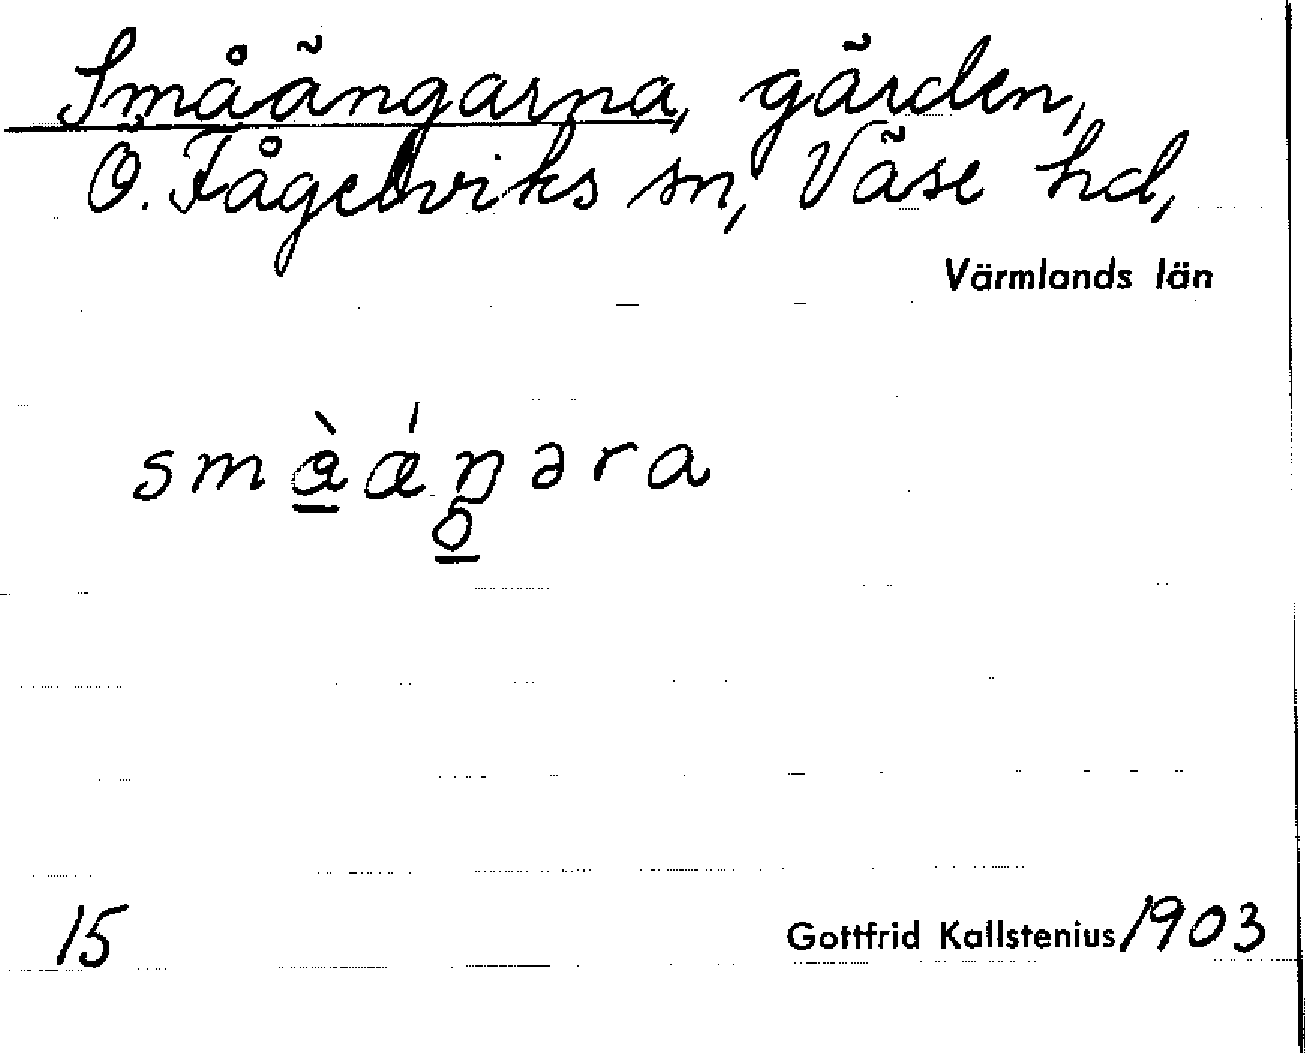 Småängarna, gärden,
Ö. Fågelviks sn, Väse hd,
Värmlands län
smàǽŋəra
15
Gottfrid Kallstenius 1903